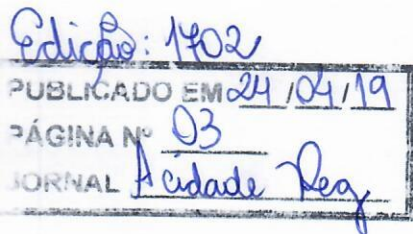 Edição: 1702
PUBLICADO EM 24/04/19
PÁGINA Nº 03
JORNAL A cidade Reg